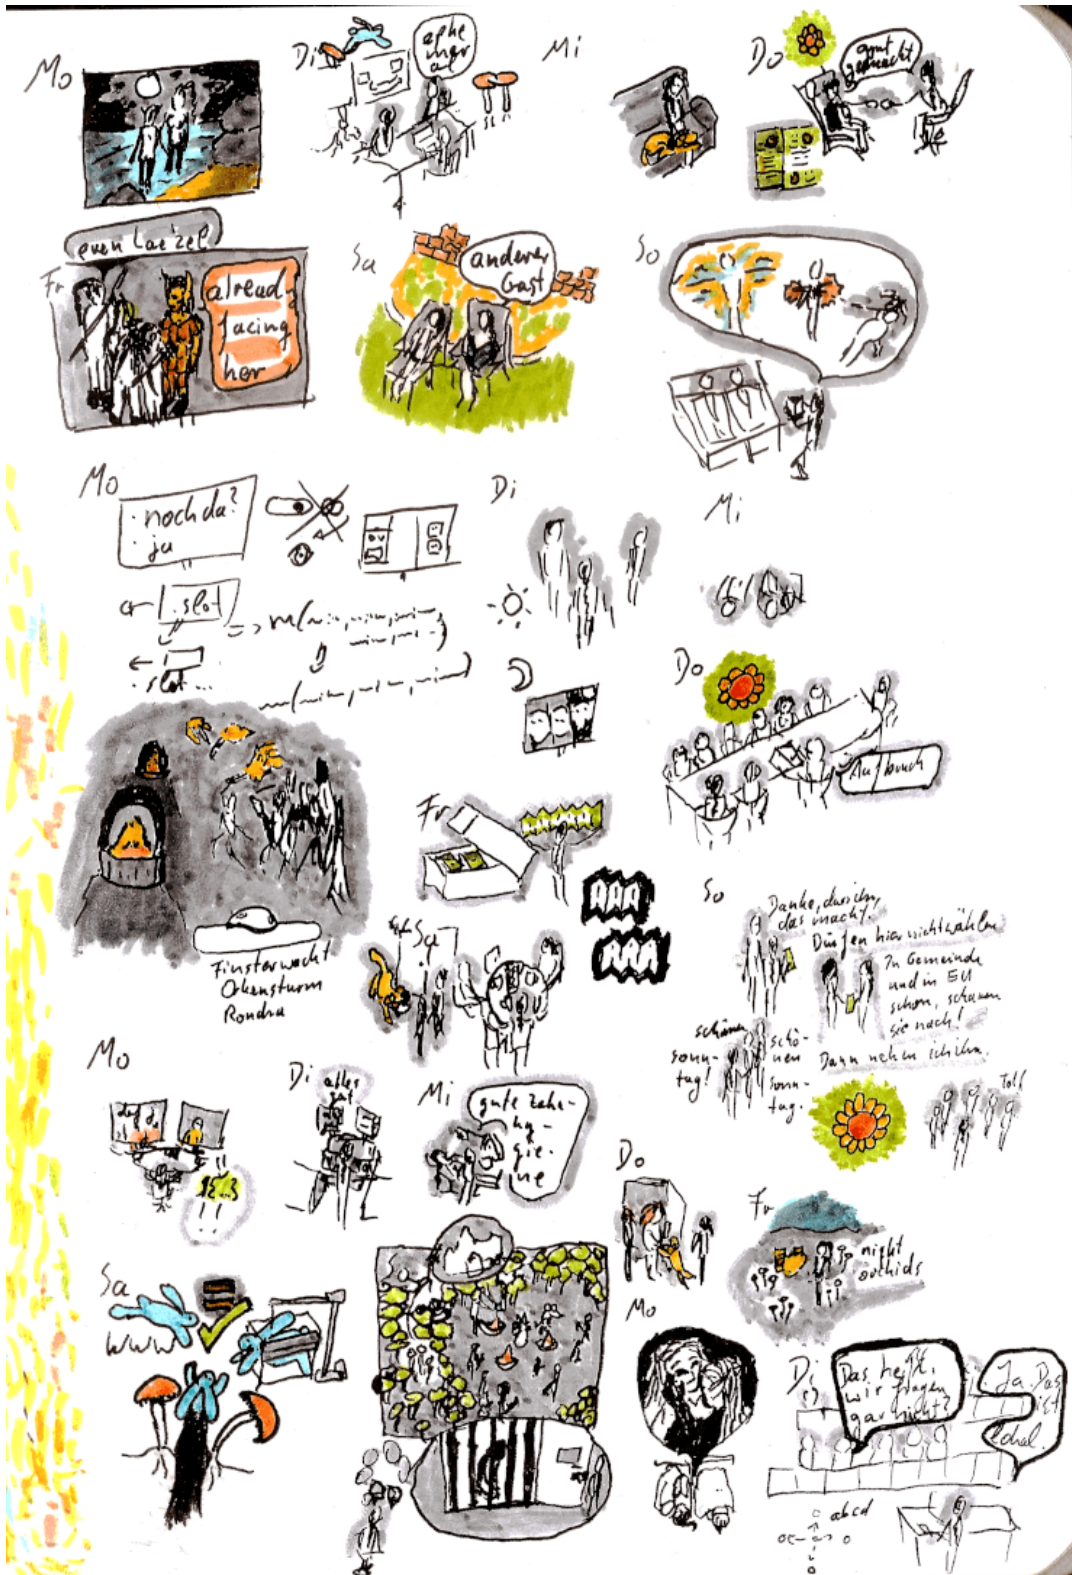 Mo
Di
ephe
mer
Mi
Do
gut
gemacht
even Lae'zel
Fr
already
facing
her
Sa
anderer
Gast
So
Mo
· noch da?
· ja
.slot
.slot...
Di
Mi
Do
Aufbruch
Finsterwacht
Orkensturm
Rondra
Fr
Sa
So
Danke, dass ihr
das macht.
Dürfen hier nicht wählen
In Gemeinde
und in EU
schon, schauen
sie nach!
Dann nehm ich ihn.
schönen
sonn-
tag!
schö-
nen
sonn-
tag.
Toll
Mo
Di
alles
gut
Mi
gute zahn-
hy-
gie-
ne
Do
Fr
nicht
orchids
Sa
www
Mo
Di
Das heißt,
wir fragen
gar nicht?
Ja. Das
ist
lokal.
abcd